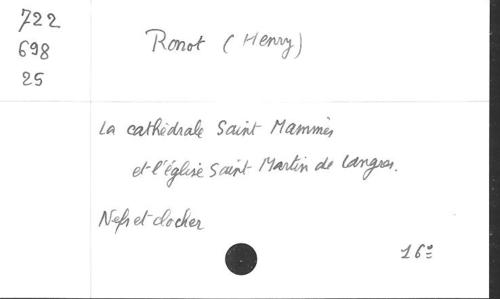 722
698
25
Ronot (Henry)
La cathédrale Saint Mammès
et l'église Saint Martin de Langres.
Nefs et clocher
16°